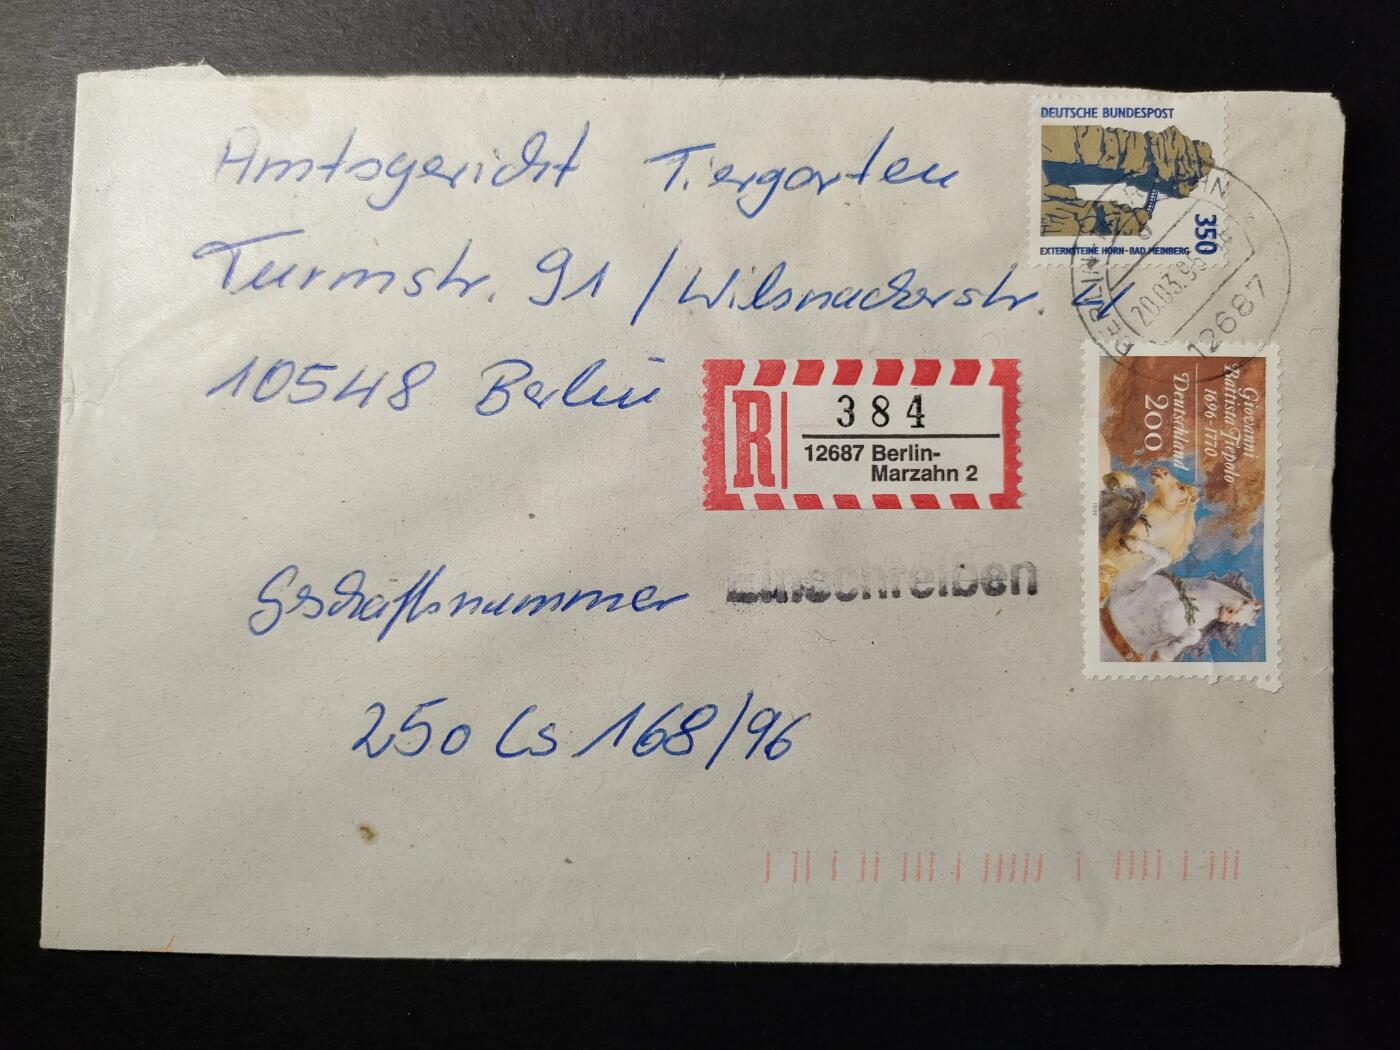 Amtsgericht Tiergarten
Turmstr. 91 / Wilsnackerstr. 4
10548 Berlin
Gschäftsnummer
250 Cs 168/96
R
384
12687 Berlin-
Marzahn 2
Einschreiben
DEUTSCHE BUNDESPOST
350
EXTERNSTEINE HORN-BAD MEINBERG
BERLIN
12687
Giovanni
Battista Tiepolo
1696-1770
Deutschland
200
1996